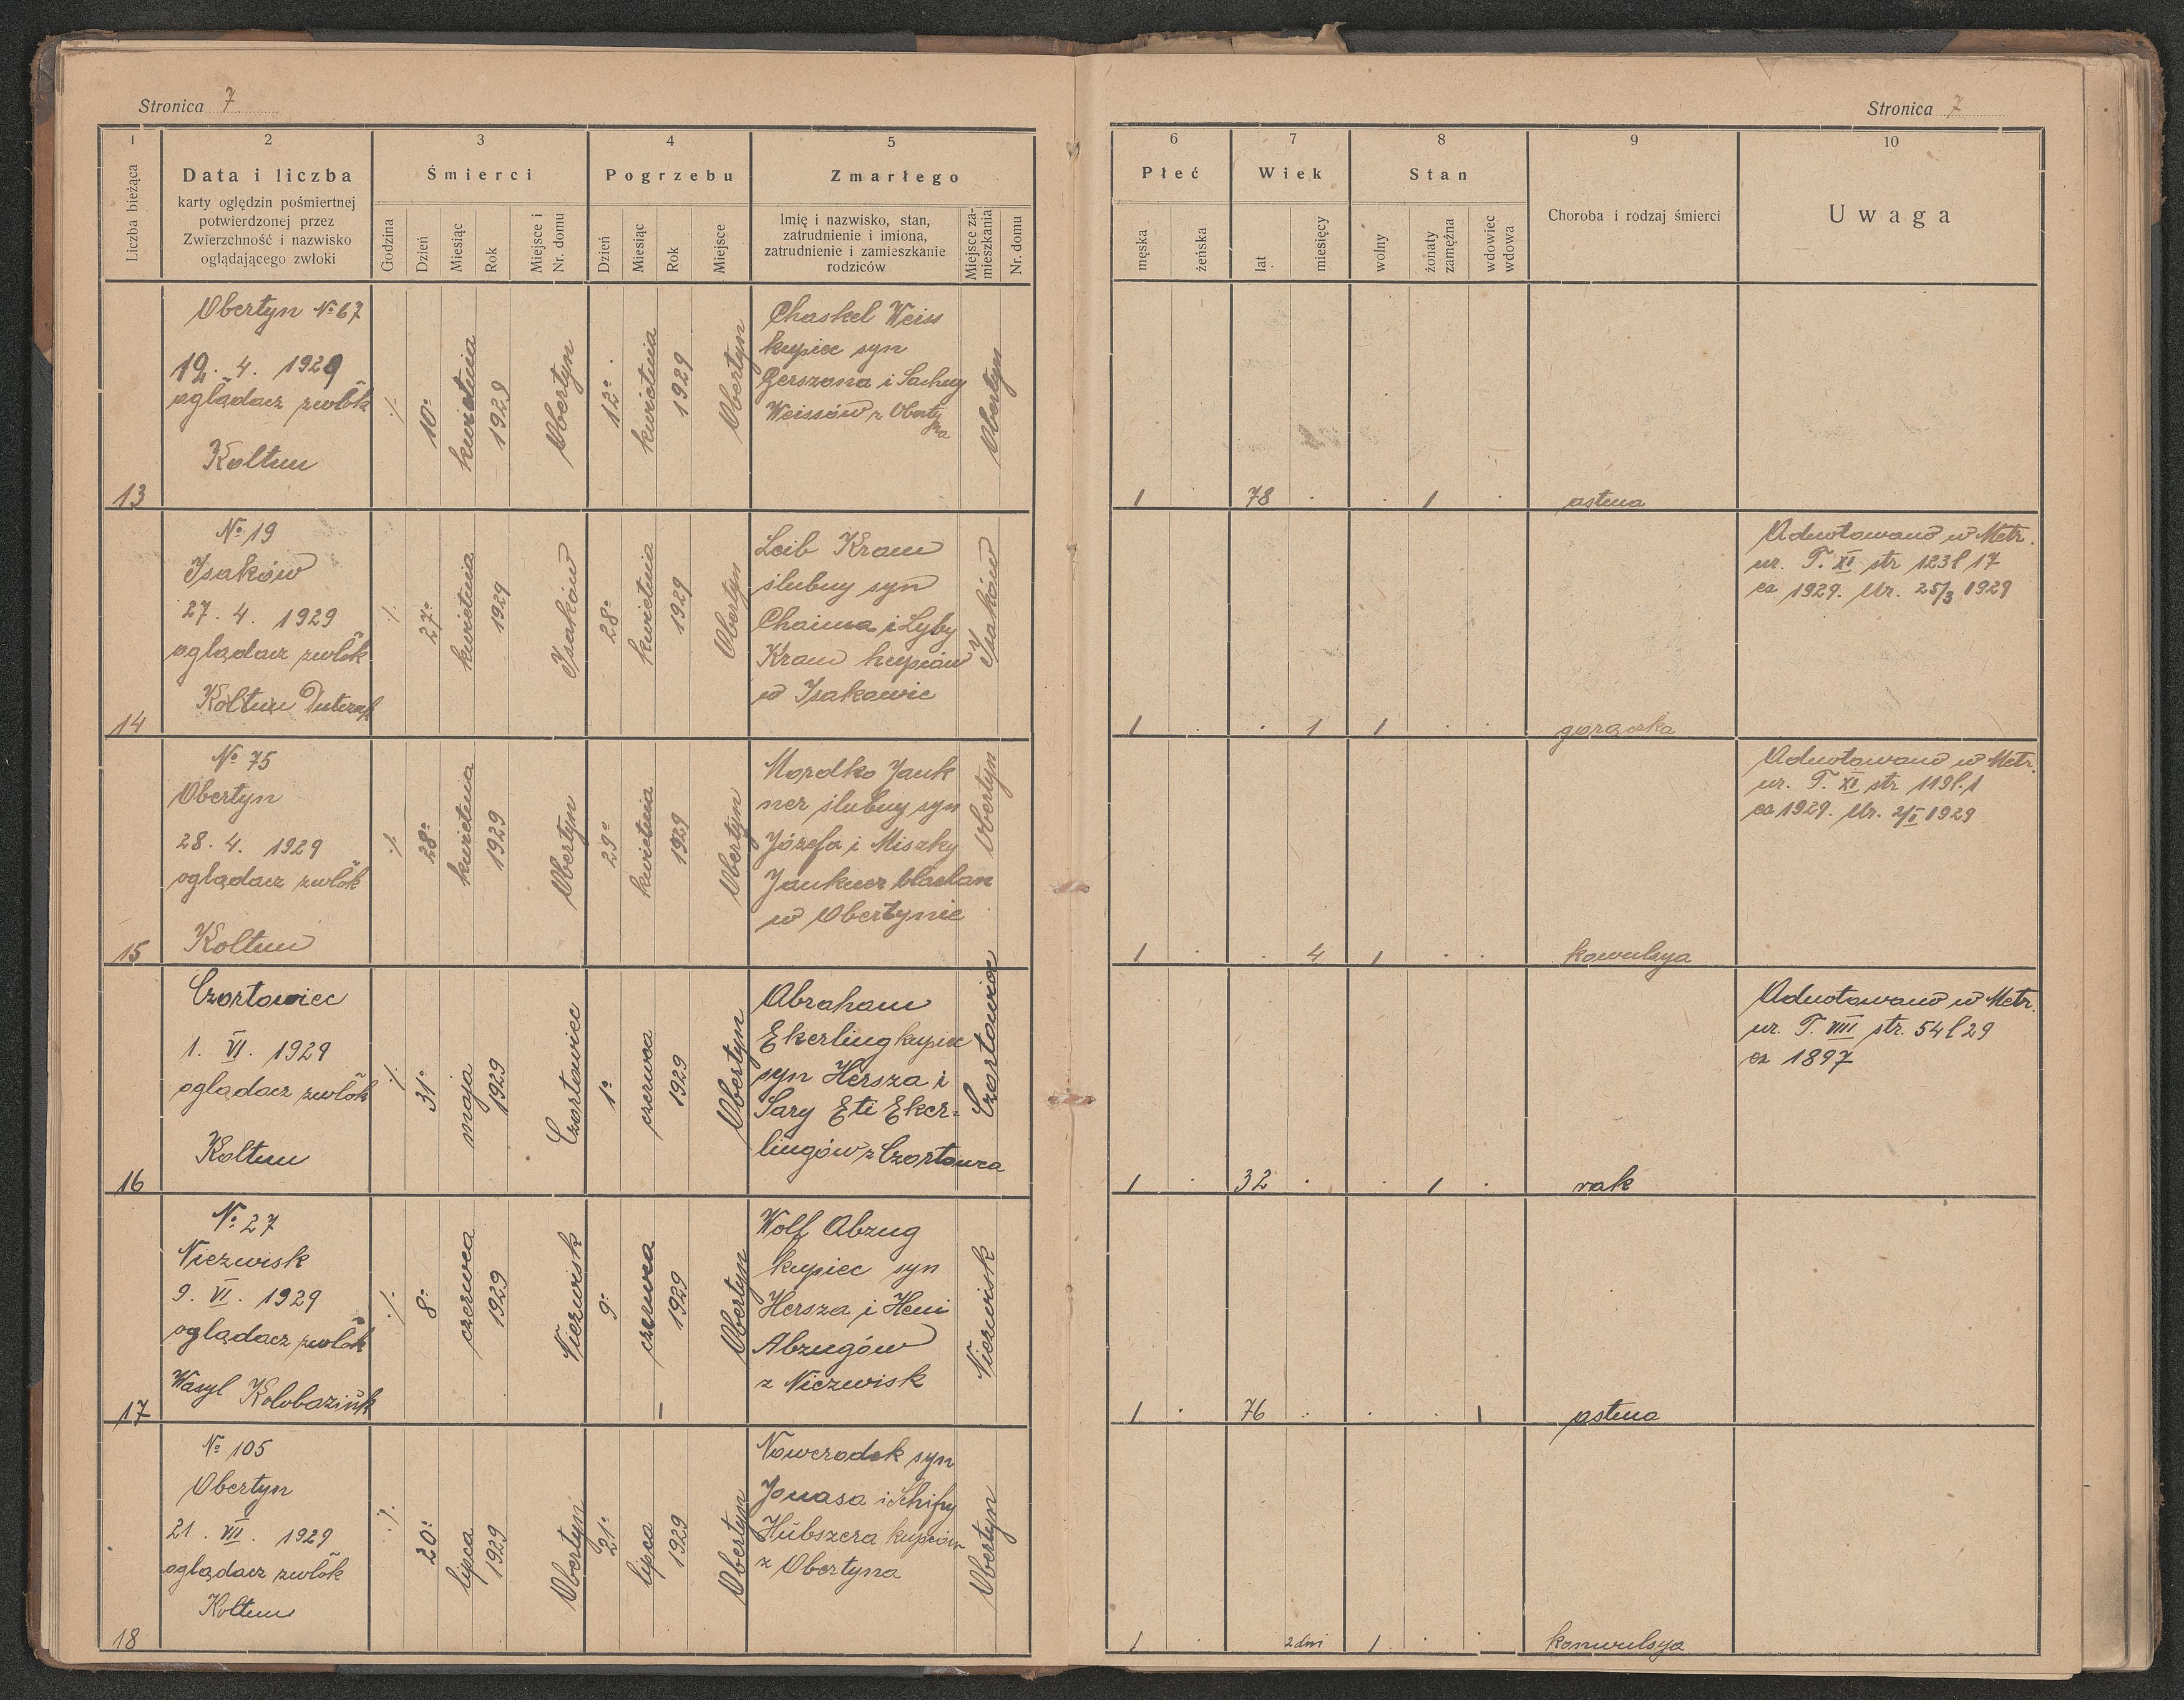 Stronica 7
Stronica 7
1
2
3
4
5
6
7
8
9
10
Liczba bieżąca
Data i liczba
karty oględzin pośmiertnej
potwierdzonej przez
Zwierzchność i nazwisko
oglądającego zwłoki
Śmierci
Godzina
Dzień
Miesiąc
Rok
Miejsce i
Nr. domu
Pogrzebu
Dzień
Miesiąc
Rok
Miejsce
Zmarłego
Imię i nazwisko, stan,
zatrudnienie i imiona,
zatrudnienie i zamieszkanie
rodziców
Miejsce za-
mieszkania
Nr. domu
Płeć
męska
żeńska
Wiek
lat
miesięcy
Stan
wolny
żonaty
zamężna
wdowiec
wdowa
Choroba i rodzaj śmierci
Uwaga
13
Obertyn № 67
12. 4. 1929
oglądacz zwłok
Koltun
·/·
10
kwietnia
1929
Obertyn
12
kwietnia
1929
Obertyn
Chaskel Weiss
kupiec syn
Gerszona i
Weissów z Oberty
na
Obertyn
1
78
1
astma
14
№ 19
Isaków
27. 4. 1929
oglądacz zwłok
Koltun
·/·
27
kwietnia
1929
Isaków
28
kwietnia
1929
Obertyn
Leib Kram
ślubny syn
Chaima i Lyby
Kram kupców
w Isakowie
Isaków
1
1
1
gorączka
Adnotowano w Metr.
ur. T. XI str 123 l 17
ex 1929. Ur. 25/3 1929
15
№ 75
Obertyn
28. 4. 1929
oglądacz zwłok
Koltun
·/·
28
kwietnia
1929
Obertyn
29
kwietnia
1929
Obertyn
Mordko Jank
ner ślubny syn
Józefa i Miszky
Jankner blachar
w Obertynie
Obertyn
1
4
1
kowulsya
Adnotowano w Metr.
ur. T. XI str 119 l. 1
ex 1929. Ur. 2/I 1929
16
Czortowiec
1. VI. 1929
oglądacz zwłok
Koltun
·/·
31
maja
1929
Czortowiec
1
czerwca
1929
Obertyn
Abraham
Ekerling kupiec
syn Hersza i
Sary Eti Eker-
lingów z Czortowca
Czortowiec
1
32
1
rak
Adnotowano w Metr.
ur. T. VIII str. 54 l 29
ex 1897
17
№ 27
Niezwisk
9. VI. 1929
oglądacz zwłok
Wasyl Kolobaziuk
·/·
8
czerwca
1929
Niezwisk
9
czerwca
1929
Obertyn
Wolf Abzug
kupiec syn
Hersza i Heni
Abzugów
z Niezwisk
Niezwisk
1
76
1
astma
18
№ 105
Obertyn
21. VII. 1929
oglądacz zwłok
Koltun
·/·
20
lipca
1929
Obertyn
21
lipca
1929
Obertyn
Noworodek syn
Jonasa i Schifry
Hübszera kupców
z Obertyna
Obertyn
1
2 dni
1
konwulsya